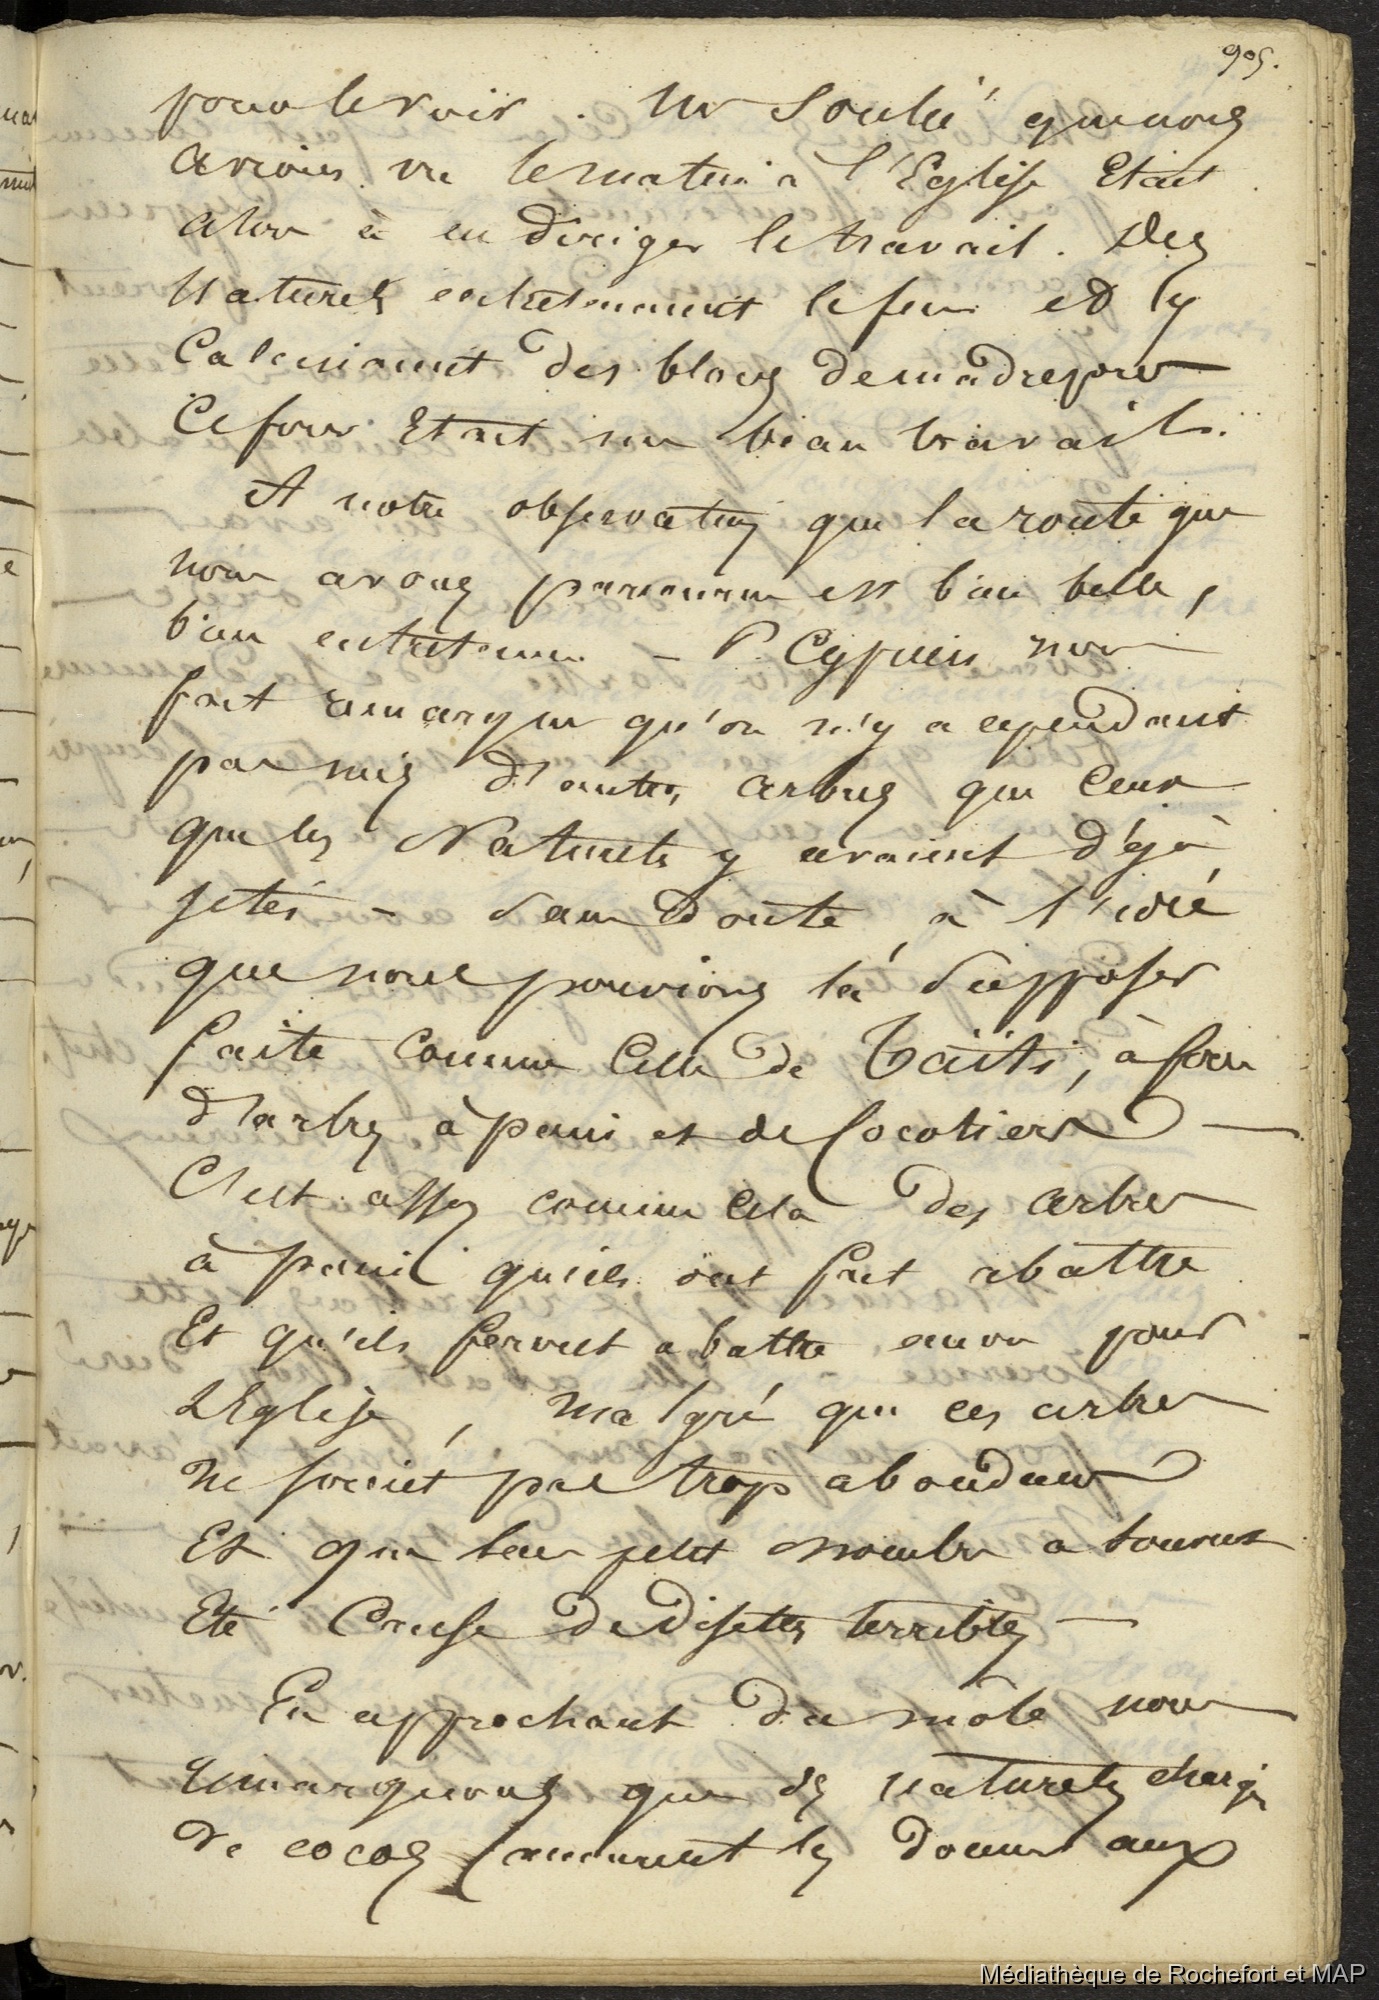 905.
pour le voir. Mr Soulié que nous
avions vu le matin à l'Eglise Etait
alors à en diriger le travail. Des
Naturels entretenaient le feu et y
Calcinaient des blocs de madrepores
Ce four Etait un beau travail.
A notre observation que la route que
nous avons parcourue est bien belle,
bien entretenue – P. Cyprien nous
fait remarquer qu'on n'y a cependant
pas mis d'autres arbres que ceux
que les Naturels y avaient déjà
jetés – sans doute à l'idée
que nous pouvions la supposer
faite comme celle de Taïti, à force
d'arbres à pain et de Cocotiers —
C'est assez comme cela des arbres
à pain qu'ils ont fait abattre
Et qu'ils feront abattre encore pour
L'Eglise, malgré que ces arbres
ne soient pas trop abondans
Et que leur petit nombre a souvent
Eté Cause de disettes terribles —
En approchant du môle nous
remarquons que des naturels chargés
de cocos les donner aux
Médiathèque de Rochefort et MAP